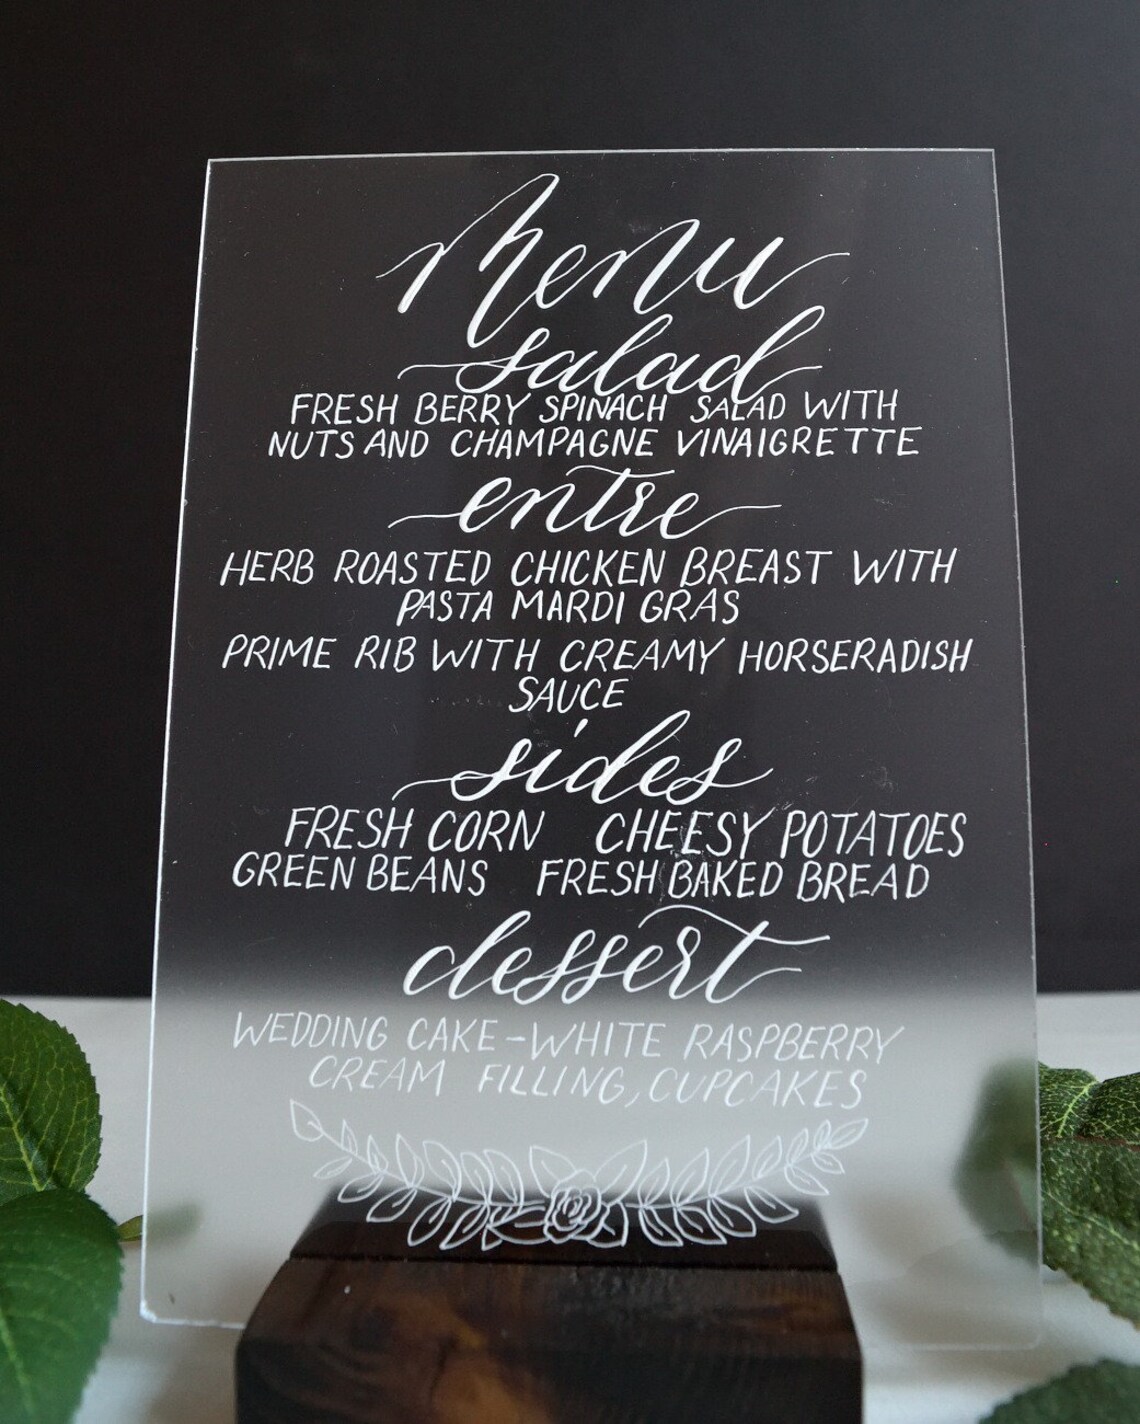 Menu
salad
FRESH BERRY SPINACH SALAD WITH
NUTS AND CHAMPAGNE VINAIGRETTE
entre
HERB ROASTED CHICKEN BREAST WITH
PASTA MARDI GRAS
PRIME RIB WITH CREAMY HORSERADISH
SAUCE
sides
FRESH CORN CHEESY POTATOES
GREEN BEANS FRESH BAKED BREAD
dessert
WEDDING CAKE-WHITE RASPBERRY
CREAM FILLING, CUPCAKES